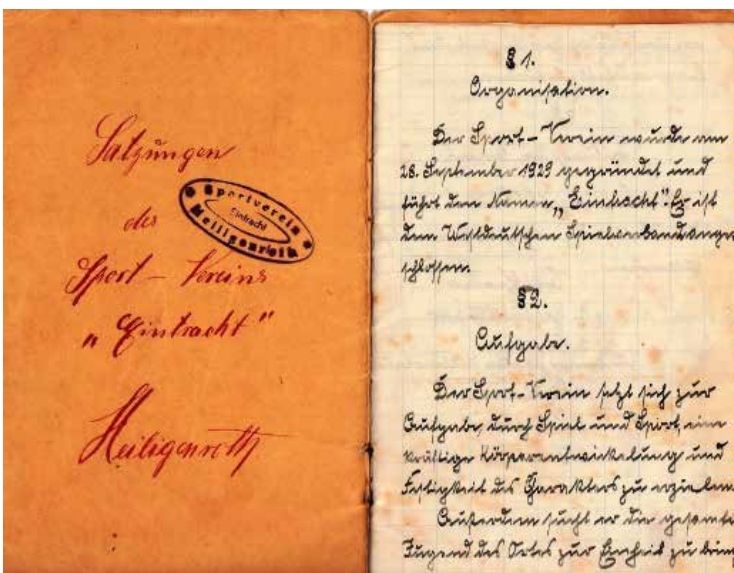 Satzungen
des
Sport - Vereins
"Eintracht"
Heiligenroth
Sportverein
Eintracht
Heiligenroth
§ 1.
Organisation.
Der Sport-Verein wurde am
28. September 1929 gegründet und
führt den Namen „Eintracht". Er ist
dem Westdeutschen Spielverband ange
schlossen.
§ 2.
Aufgabe.
Der Sport-Verein setzt sich zur
Aufgabe, durch Spiel und Sport, eine
kräftige Körperentwickelung und
Festigkeit des Charakters zu erzielen.
Außerdem sucht er die gesamte
Jugend des Ortes zur Einheit zu bring